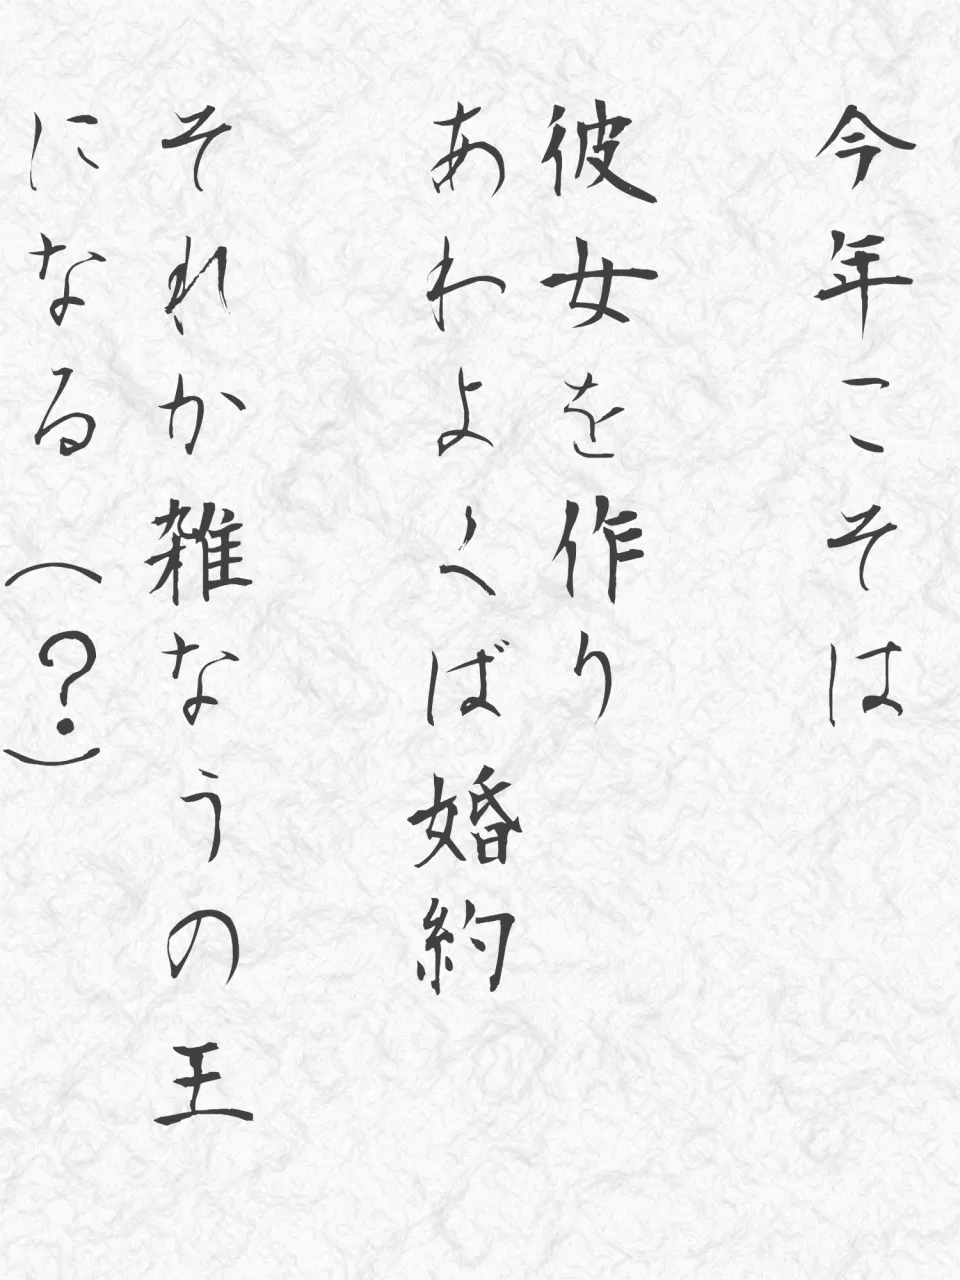 今年こそは
彼女を作り
あわよくば婚約
それか雑なうの王
になる（？）